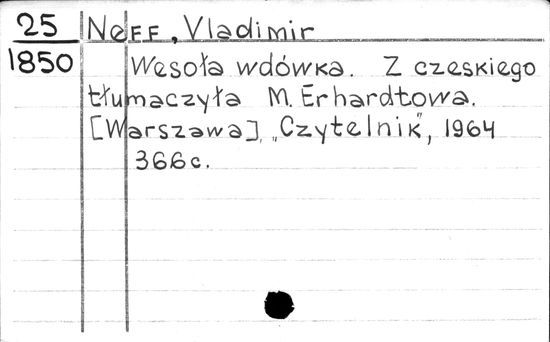 25 Neff, Vladimir
1850 Wesoła wdówka. Z czeskiego
tłumaczyła M. Erhardtowa.
[Warszawa], „Czytelnik”, 1964
366c.